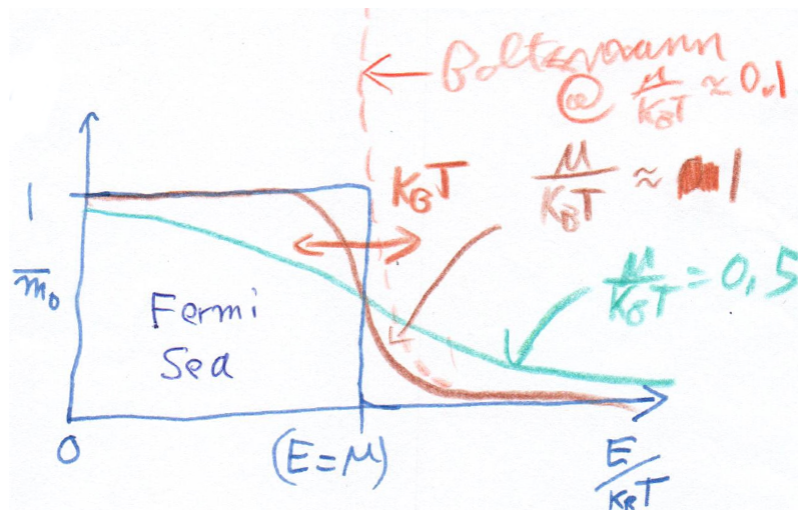 Boltzmann
@ μ/KBT ≈ 0.1
KBT
μ/KBT ≈ 1
1
m̅0
μ/KBT = 0,5
Fermi
Sea
0
(E=μ)
E/KBT